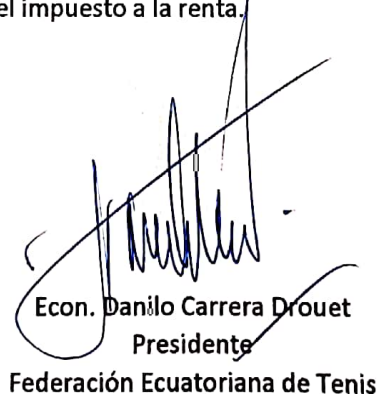 el impuesto a la renta.
Econ. Danilo Carrera Drouet
Presidente
Federación Ecuatoriana de Tenis